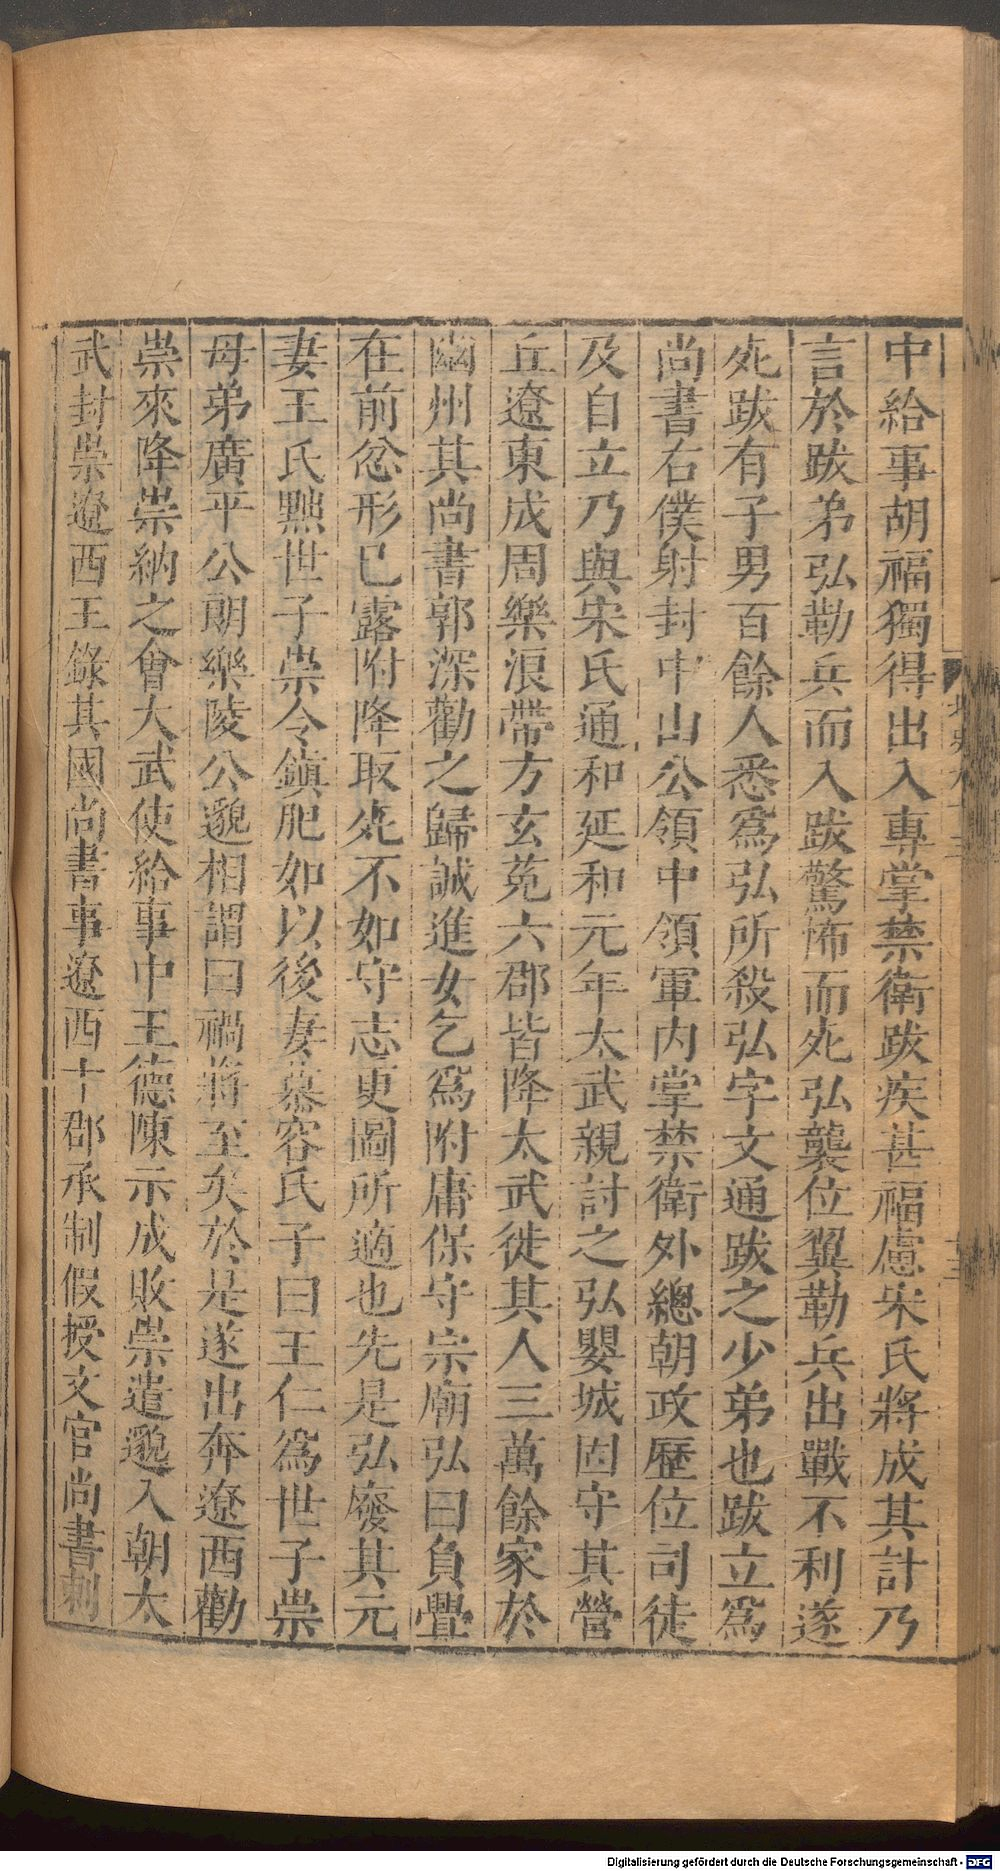 中給事胡福獨得出入專掌禁衛跋疾甚福慮宋氏將成其計乃
言於跋弟弘勒兵而入跋驚怖而死弘襲位翼勒兵出戰不利遂
死跋有子男百餘人悉爲弘所殺弘字文通跋之少弟也跋立爲
尚書右僕射封中山公領中領軍內掌禁衛外總朝政歷位司徒
及自立乃與宋氏通和延和元年太武親討之弘嬰城固守其營
丘遼東成周樂浪帶方玄菟六郡皆降太武徙其人三萬餘家於
幽州其尚書郭深勸之歸誠進女乞爲附庸保守宗廟弘曰負釁
在前忿形已露附降取死不如守志更圖所適也先是弘廢其元
妻王氏黜世子崇令鎮肥如以後妻慕容氏子曰王仁爲世子崇
母弟廣平公朗樂陵公邈相謂曰禍將至矣於是遂出奔遼西勸
崇來降崇納之會太武使給事中王德陳示成敗崇遣邈入朝太
武封崇遼西王錄其國尚書事遼西十郡承制假授文官尚書刺
Digitalisierung gefördert durch die Deutsche Forschungsgemeinschaft - DFG